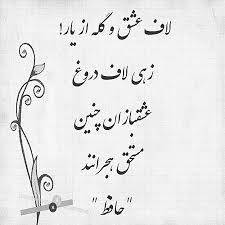 لاف عشق و گله از یار!
زهی لاف دروغ
عشقبازان چنین
مستحق هجرانند
"حافظ"